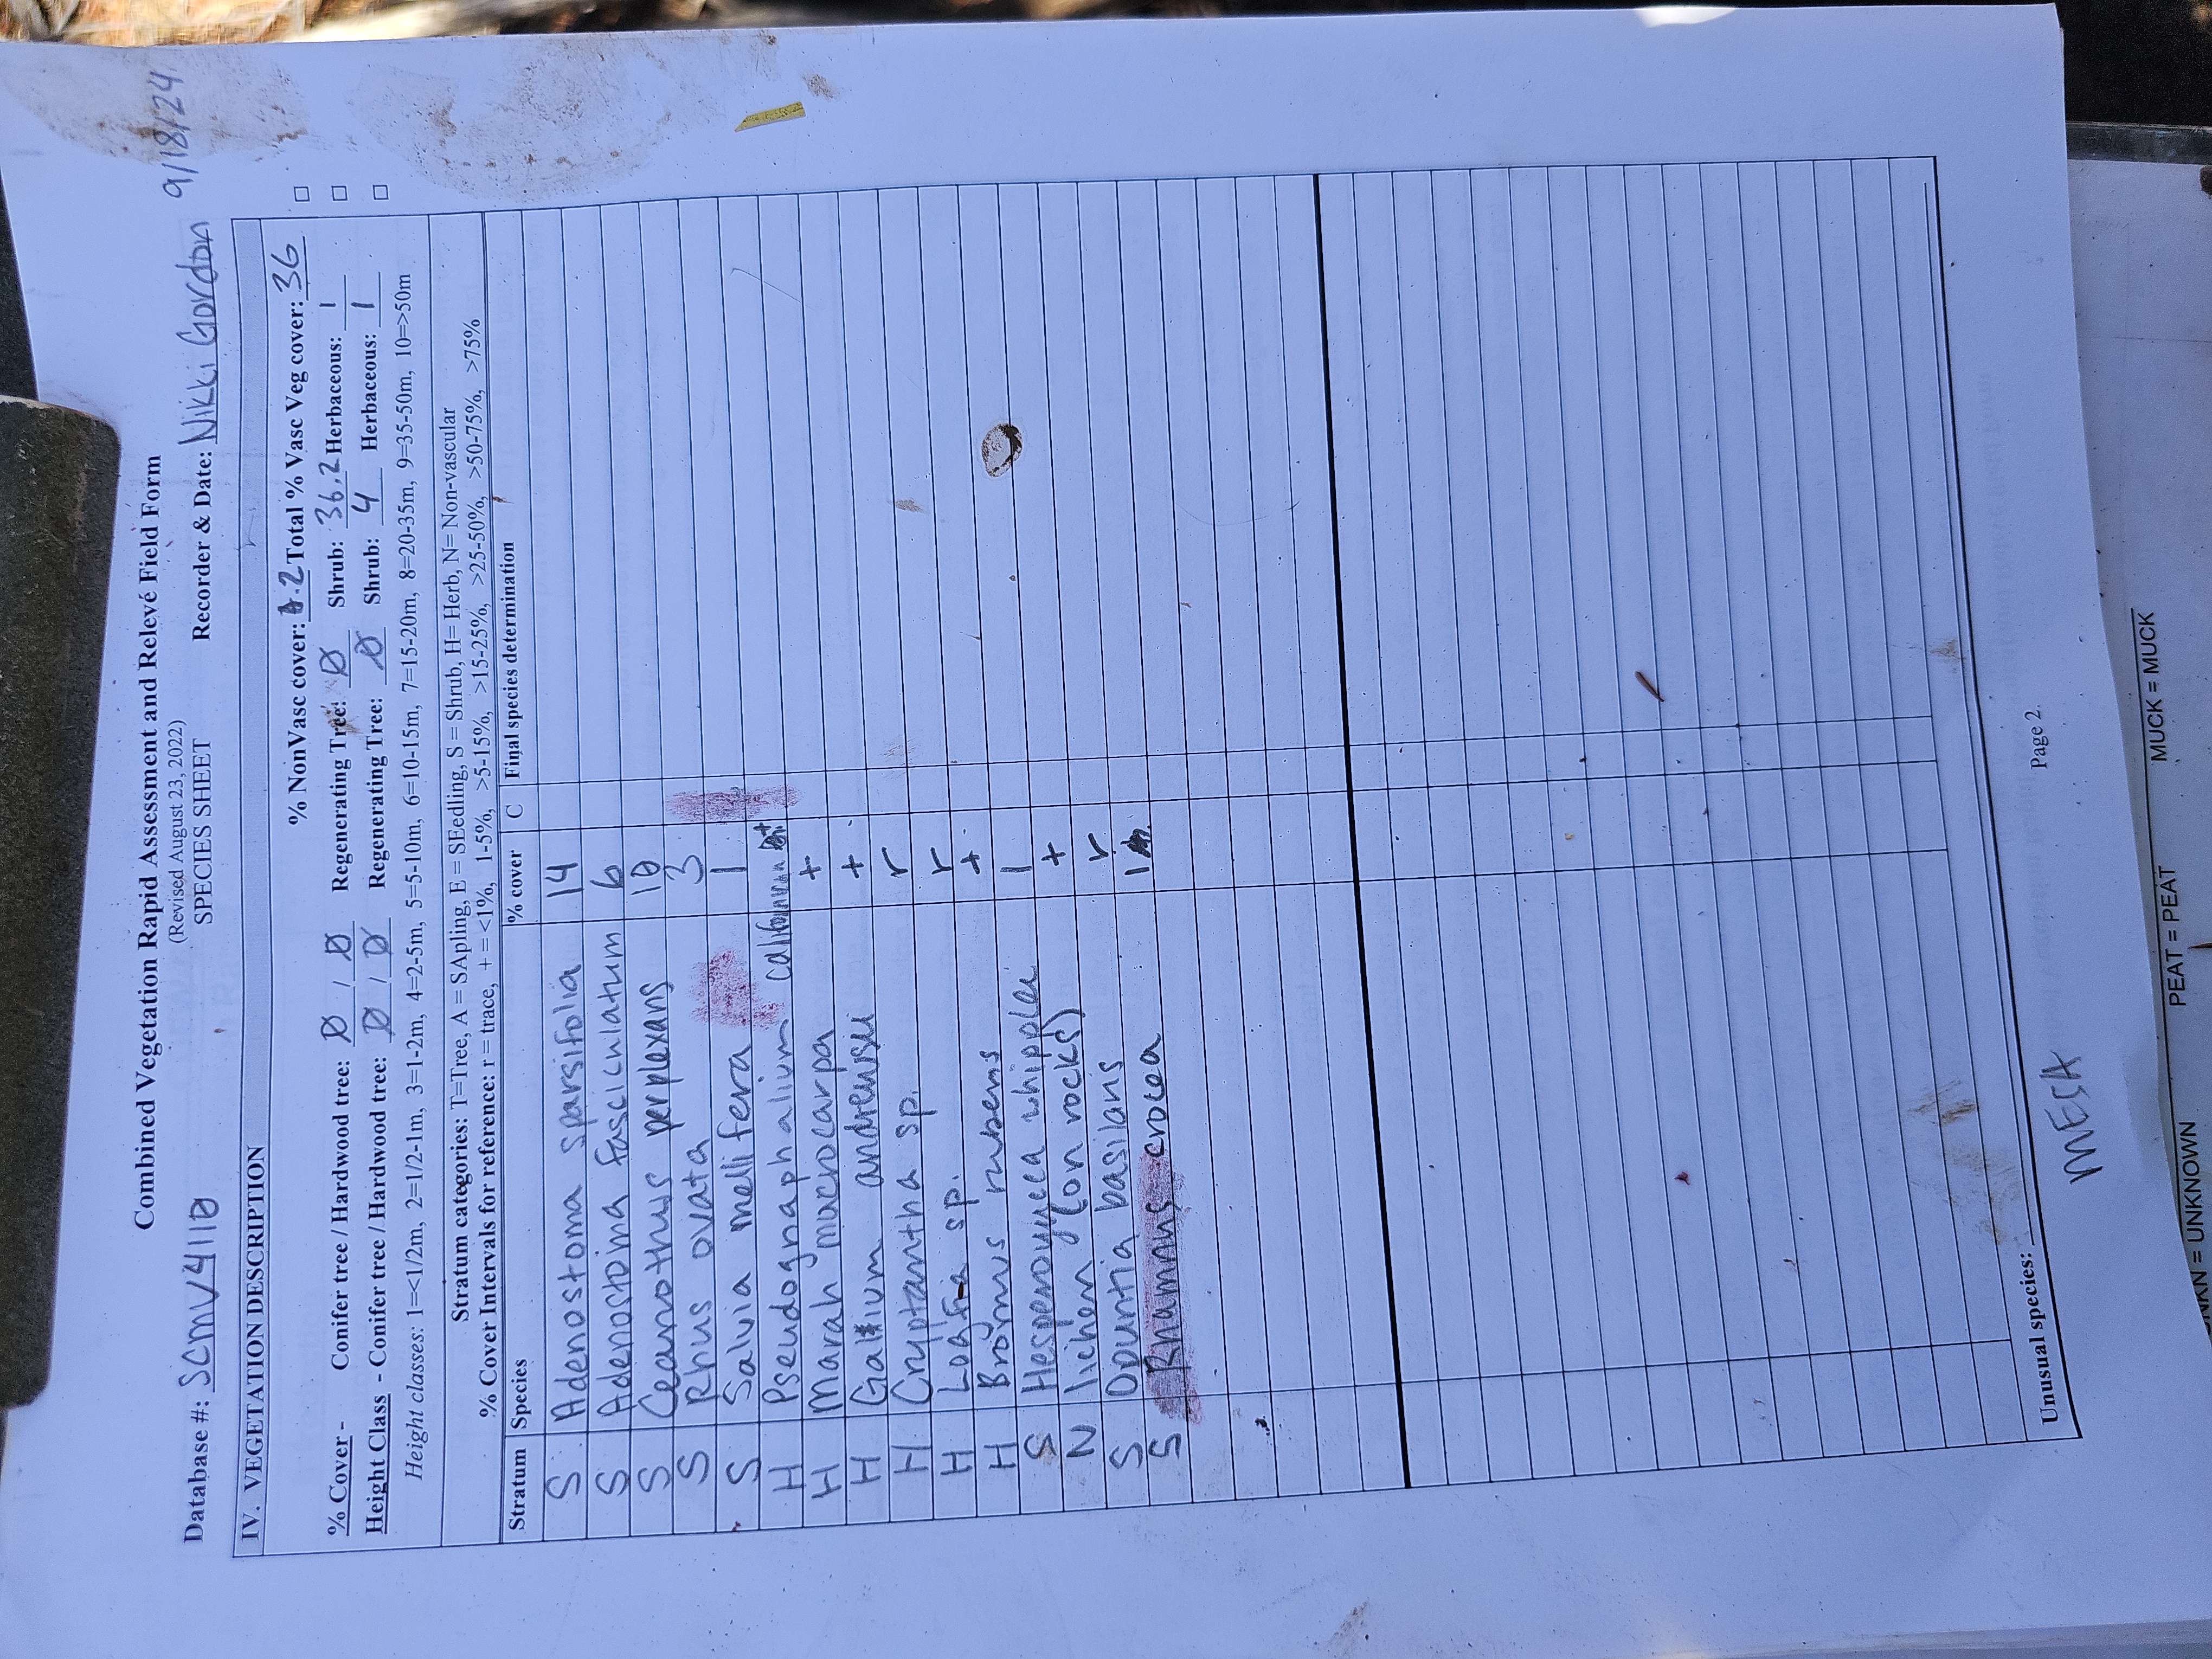 Combined Vegetation Rapid Assessment and Relevé Field Form
(Revised August 23, 2022)
Database #: SCMV41110 SPECIES SHEET Recorder & Date: Nikki Gordon 9/18/24
IV. VEGETATION DESCRIPTION
% NonVasc cover: .2 Total % Vasc Veg cover: 36 □
% Cover - Conifer tree / Hardwood tree: Ø / Ø Regenerating Tree: Ø Shrub: 36.2 Herbaceous: 1 □
Height Class - Conifer tree / Hardwood tree: Ø / Ø Regenerating Tree: Ø Shrub: 4 Herbaceous: 1 □
Height classes: 1=<1/2m, 2=1/2-1m, 3=1-2m, 4=2-5m, 5=5-10m, 6=10-15m, 7=15-20m, 8=20-35m, 9=35-50m, 10=>50m
Stratum categories: T=Tree, A = SApling, E = SEedling, S = Shrub, H= Herb, N= Non-vascular
% Cover Intervals for reference: r = trace, + = <1%, 1-5%, >5-15%, >15-25%, >25-50%, >50-75%, >75%
Stratum Species % cover C Final species determination
S Adenostoma sparsifolia 14
S Adenostoma fasciculatum 6
S Ceanothus perplexans 10
S Rhus ovata 3
S Salvia mellifera 1
H Pseudognaphalium californicum +
H Marah macrocarpa +
H Galium andrewsii +
H Cryptantha sp. r
H Logfia sp. r
H Bromus rubens +
S Hesperoyucca whipplei 1
N lichen (on rocks) +
S Opuntia basilaris r
S Rhamnus crocea 1
Unusual species:
Page 2
MESA
UNKN = UNKNOWN PEAT = PEAT MUCK = MUCK